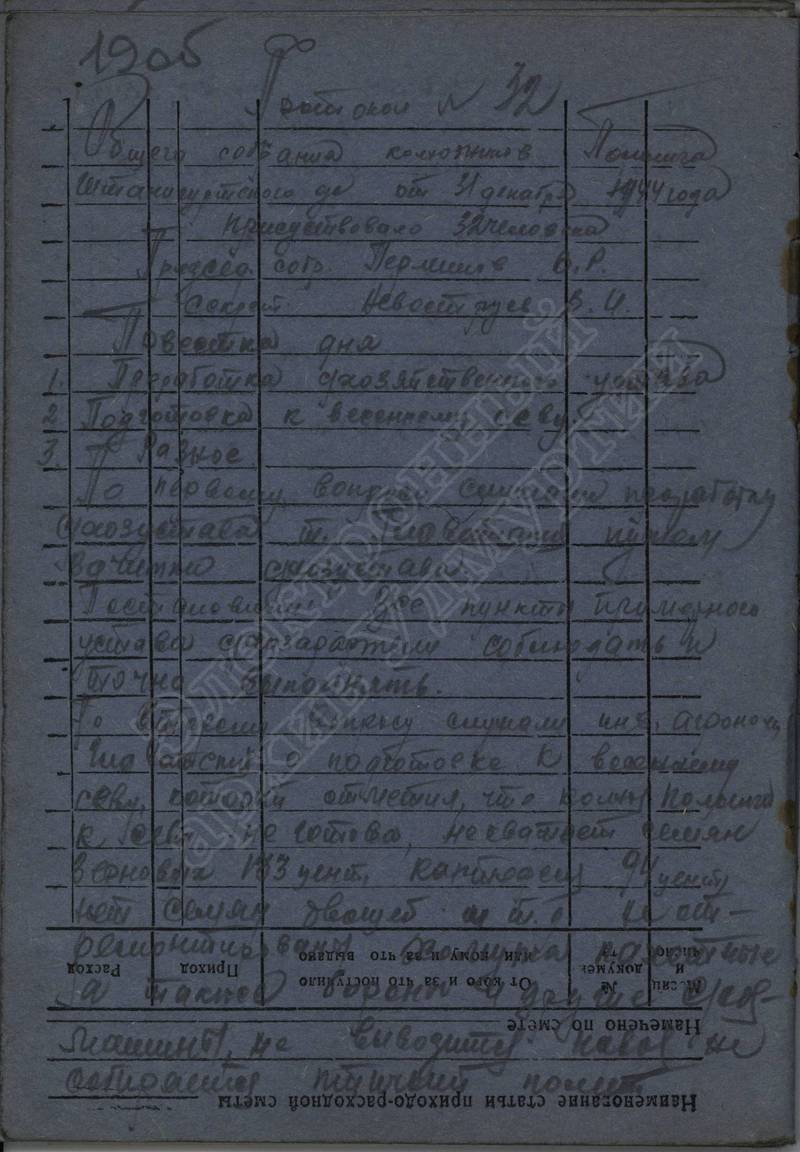 1905
Протокол № 32
Общего собрания колхозников
от 31 декабря 1944 года
Присутствовало 32 человека
Председ. собр. Перминов
Секрет. Невоструев В. И.
Повестка дня
1. Проработка с/хозяйственного устава
2 Подготовка к весеннему севу.
3. Разное
По первому вопросу слушали проработку
с/хозустава т. Главатских путем
зачитки с/хозустава.
Постановили: Все пункты примерного
устава с/хозартели соблюдать и
точно выполнять.
По второму вопросу слушали
Главатских о подготовке к весеннему
севу, который отметил, что
к севу не готова, не хватает семян
зерновых 133 цент. картофеля 94 цент
нет семян овощей и т. д. не от-
ремонтированы
а также бороны и другие с/хоз-
машины, не вывозится навоз не
собирается птичий помет.
Месяц и число
№ документа
От кого и за что поступило или кому и за что выдано
Приход
Расход
Намечено по смете
Наименование статьи приходо-расходной сметы
Электронный
архив Удмуртии